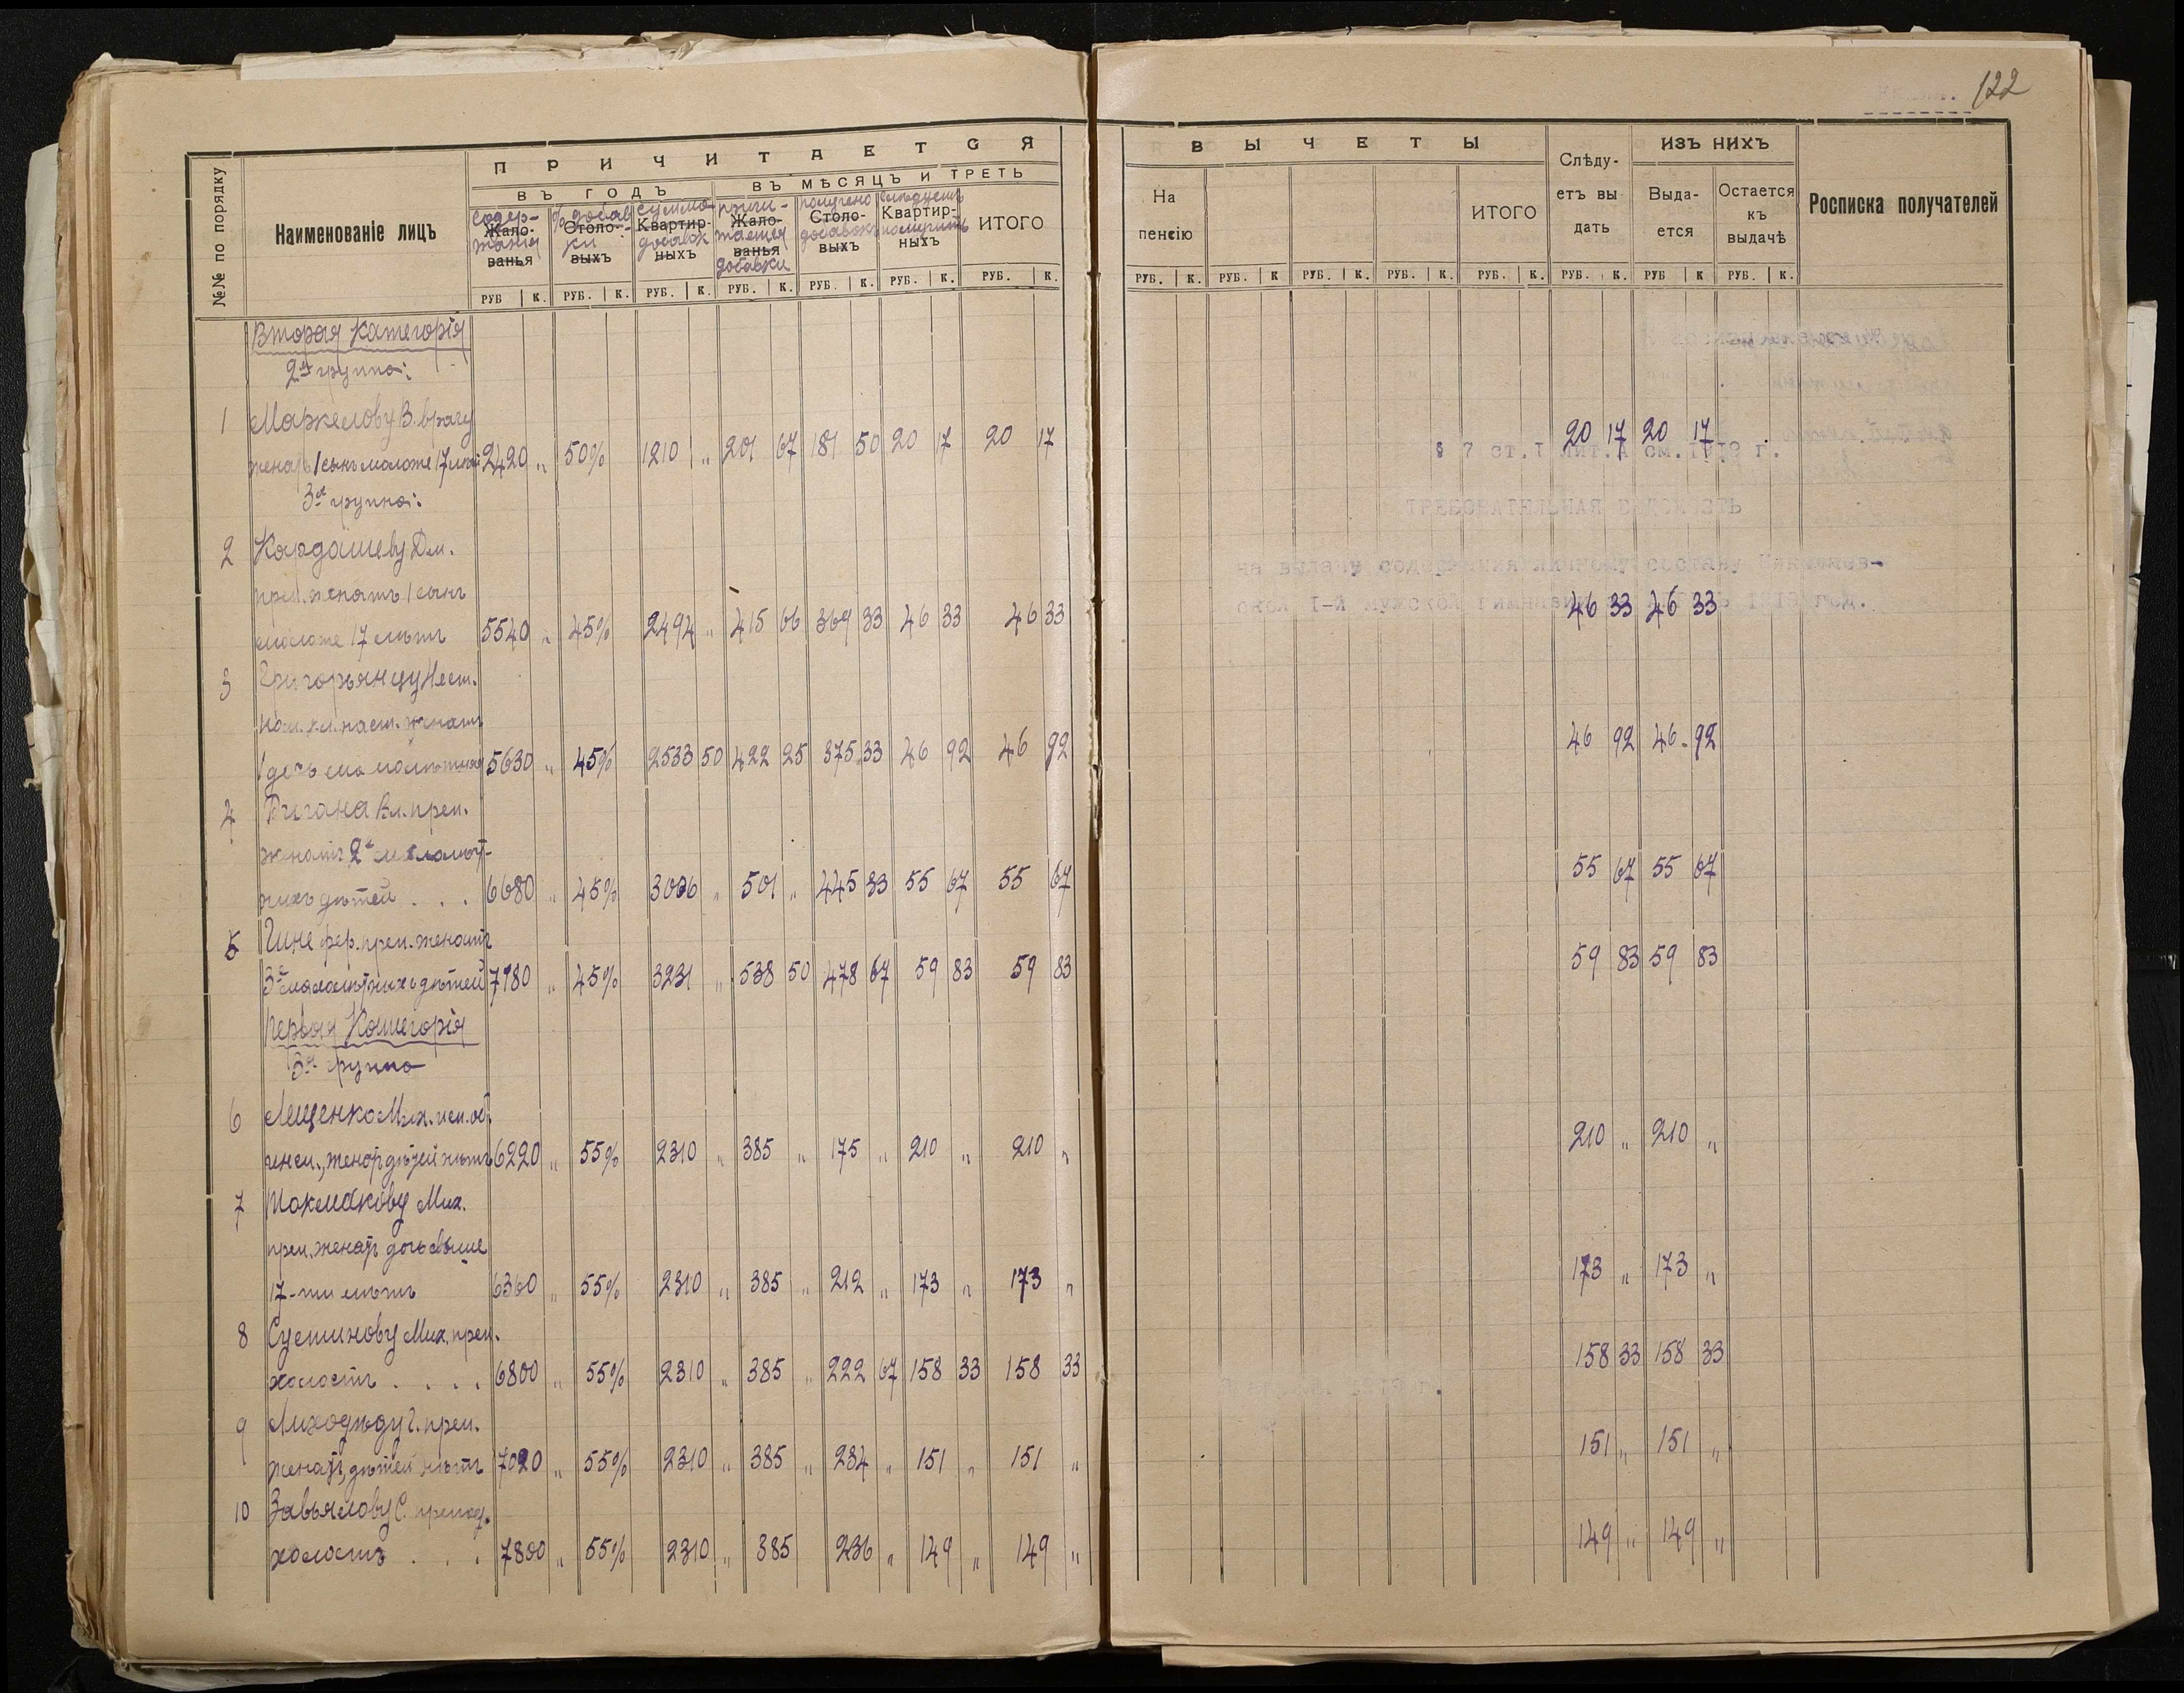 122
№№ по порядку
Наименованіе лицъ
ПРИЧИТАЕТСЯ
ВЪ ГОДЪ
ВЪ МѢСЯЦЪ И ТРЕТЬ
Содер-
жанія
Жало-
ванья
% добав-
ки
Столо-
выхъ
Сумма
добавок
Квартир-
ныхъ
причи-
тается
добавки
Жало-
ванья
получено
добавокъ
Столо-
выхъ
слѣдуетъ
получить
Квартир-
ныхъ
ИТОГО
РУБ К. РУБ. К. РУБ. К. РУБ. К. РУБ. К. РУБ. К. РУБ. К.
ВЫЧЕТЫ
На
пенсію
ИТОГО
Слѣду-
етъ вы
дать
ИЗЪ НИХЪ
Выда-
ется
Остается
къ
выдачѣ
Росписка получателей
РУБ. К. РУБ. К РУБ. К. РУБ. К. РУБ. К. РУБ. К. РУБ К РУБ. К.
Вторая Категорія
2я группа:
1 Маркелову В. врачу
женатъ 1 сынъ моложе 17 лѣтъ 2420 „ 50% 1210 „ 201 67 181 50 20 17 20 17 20 17 20 17
3я группа:
2 Кардашеву Дм.
преп. женатъ 1 сынъ
моложе 17 лѣтъ 5540 „ 45% 2494 „ 415 66 369 33 46 33 46 33 46 33 46 33
3 Григорьянцу Нест.
пом. кл. наст. женатъ
1 дочь малолѣтняя 5630 „ 45% 2533 50 422 25 375 33 46 92 46 92 46 92 46 92
4 Вл. преп.
женатъ 2е малолѣт-
нихъ дѣтей . . . 6680 „ 45% 3006 „ 501 „ 445 33 55 67 55 67 55 67 55 67
5 Гине фер. преп. женатъ
3е малолѣтнихъ дѣтей 7180 „ 45% 3231 „ 538 50 478 67 59 83 59 83 59 83 59 83
Первая Категорія
3я группа
6 Лещенко Мих. исп. об.
инсп., женат дѣтей нѣтъ 6220 „ 55% 2310 „ 385 „ 175 „ 210 „ 210 „ 210 „ 210 „
7 Токмакову Мих.
преп. женат дочь свыше
17-ти лѣтъ 6360 „ 55% 2310 „ 385 „ 212 „ 173 „ 173 „ 173 „ 173 „
8 Сустинову Мих. преп.
холостъ . . . . 6800 „ 55% 2310 „ 385 „ 222 67 158 33 158 33 158 33 158 33
9 Лиходѣду Г. преп.
женат, дѣтей нѣтъ 7020 „ 55% 2310 „ 385 „ 234 „ 151 „ 151 „ 151 „ 151 „
10 Завьялову С. препод.
холостъ . . . 7800 „ 55% 2310 „ 385 236 „ 149 „ 149 „ 149 „ 149 „
§ 7 ст. I лит. А см. 1919 г.
ТРЕБОВАТЕЛЬНАЯ ВѢДОМОСТЬ
на выдачу содержанія личному составу
ской I-й мужской гимназіи 1919 год.